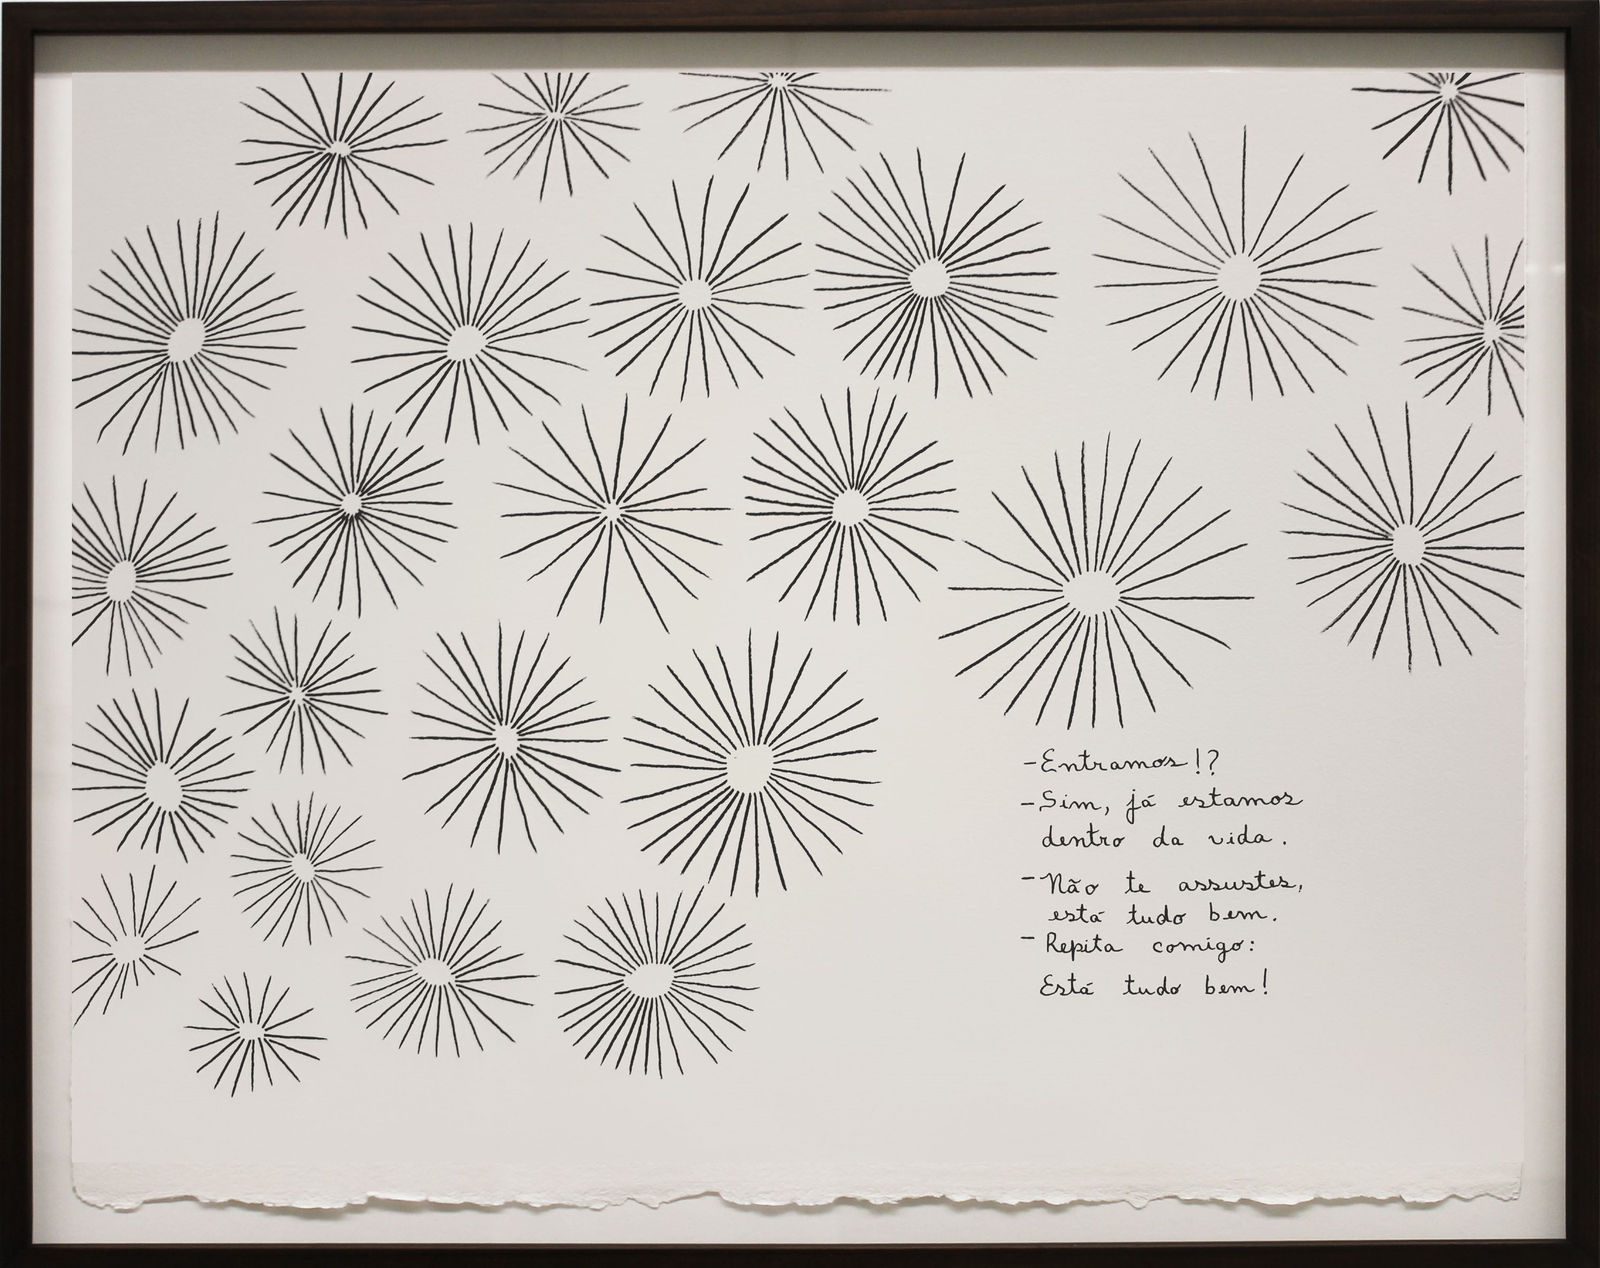 -Entramos!?
-Sim, já estamos
dentro da vida.
-Não te assustes,
está tudo bem.
-Repita comigo:
Está tudo bem!